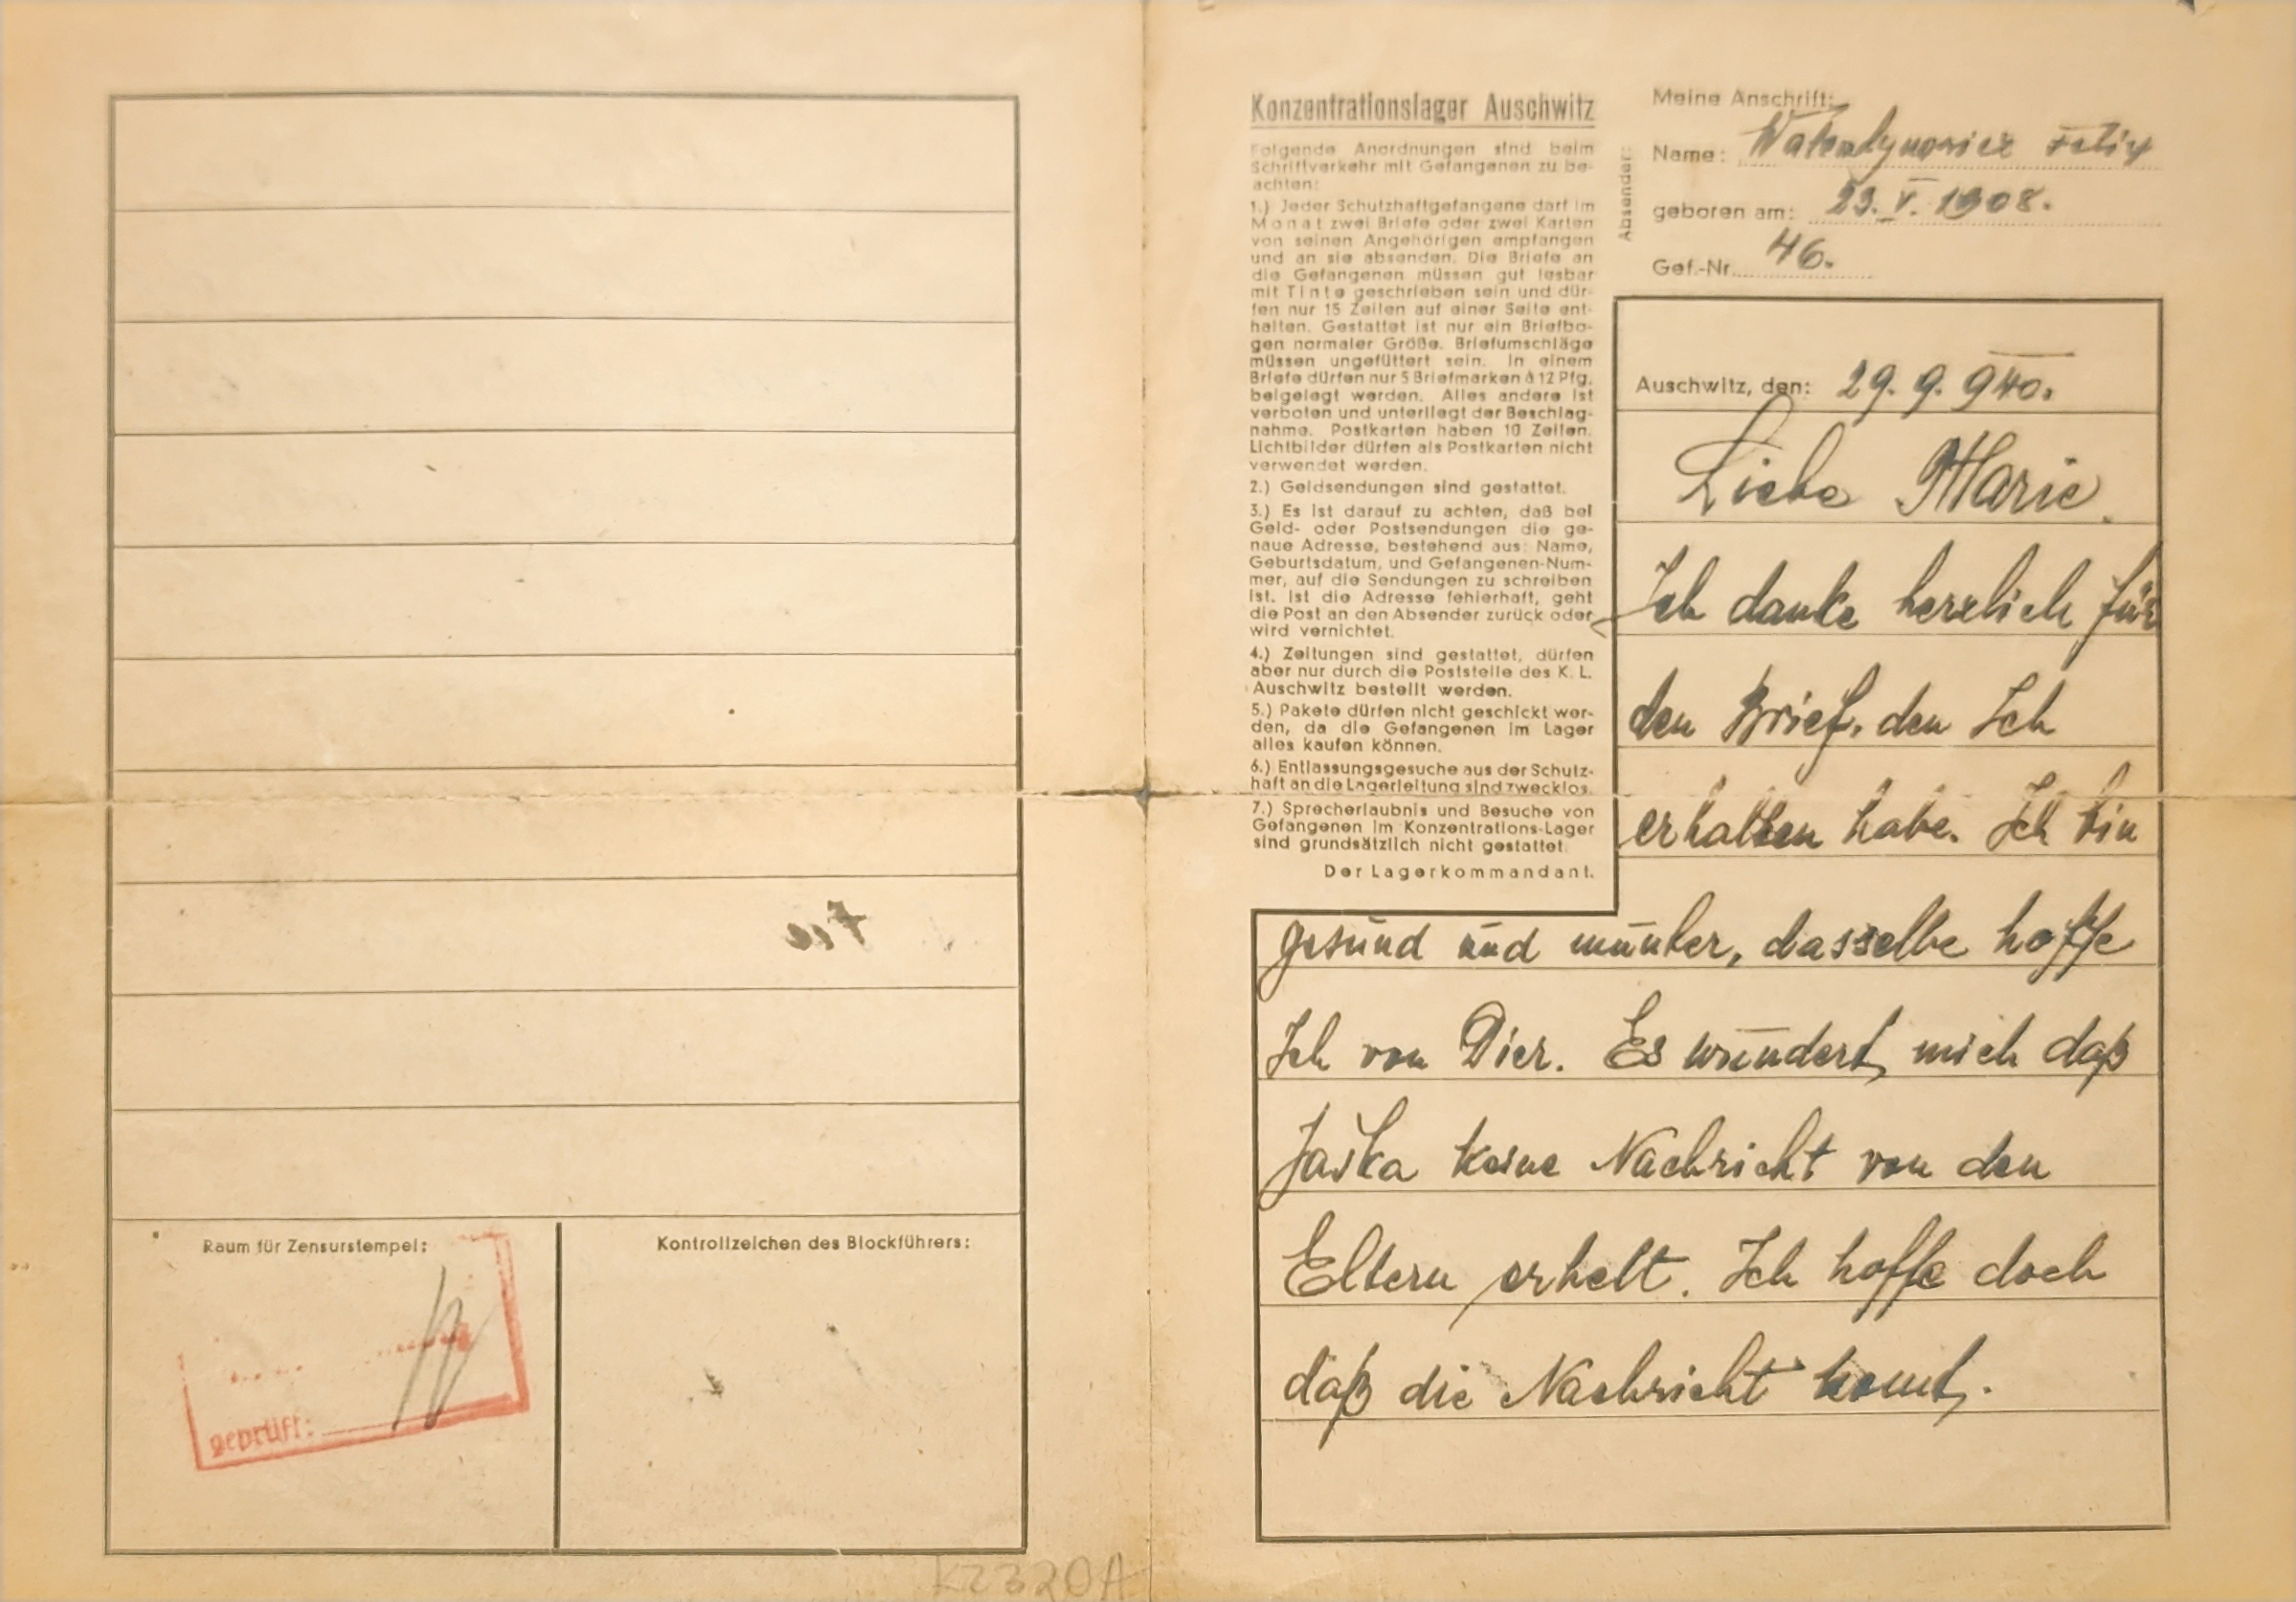 Fee
Raum für Zensurstempel:
Kontrollzeichen des Blockführers:
geprüft:
KZ320A
Konzentrationslager Auschwitz
Folgende Anordnungen sind beim
Schriftverkehr mit Gefangenen zu be-
achten:
1.) Jeder Schutzhaftgefangene darf im
Monat zwei Briefe oder zwei Karten
von seinen Angehörigen empfangen
und an sie absenden. Die Briefe an
die Gefangenen müssen gut lesbar
mit Tinte geschrieben sein und dür-
fen nur 15 Zeilen auf einer Seite ent-
halten. Gestattet ist nur ein Briefbo-
gen normaler Größe. Briefumschläge
müssen ungefüttert sein. In einem
Briefe dürfen nur 5 Briefmarken à 12 Pfg.
beigelegt werden. Alles andere ist
verboten und unterliegt der Beschlag-
nahme. Postkarten haben 10 Zeilen.
Lichtbilder dürfen als Postkarten nicht
verwendet werden.
2.) Geldsendungen sind gestattet.
3.) Es ist darauf zu achten, daß bei
Geld- oder Postsendungen die ge-
naue Adresse, bestehend aus: Name,
Geburtsdatum, und Gefangenen-Num-
mer, auf die Sendungen zu schreiben
ist. Ist die Adresse fehlerhaft, geht
die Post an den Absender zurück oder
wird vernichtet.
4.) Zeitungen sind gestattet, dürfen
aber nur durch die Poststelle des K. L.
Auschwitz bestellt werden.
5.) Pakete dürfen nicht geschickt wer-
den, da die Gefangenen im Lager
alles kaufen können.
6.) Entlassungsgesuche aus der Schutz-
haft an die Lagerleitung sind zwecklos.
7.) Sprecherlaubnis und Besuche von
Gefangenen im Konzentrations-Lager
sind grundsätzlich nicht gestattet.
Der Lagerkommandant.
Absender:
Meine Anschrift:
Name: Felix
geboren am: 23. V. 1908.
Gef.-Nr. 46.
Auschwitz, den: 29. 9. 940.
Liebe Marie.
Ich danke herzlich für
den Brief, den Ich
erhalten habe. Ich bin
gesund und munter, dasselbe hoffe
Ich von Dier. Es wundert mich daß
Jaśka keine Nachricht von den
Eltern erhelt. Ich hoffe doch
daß die Nachricht komt.